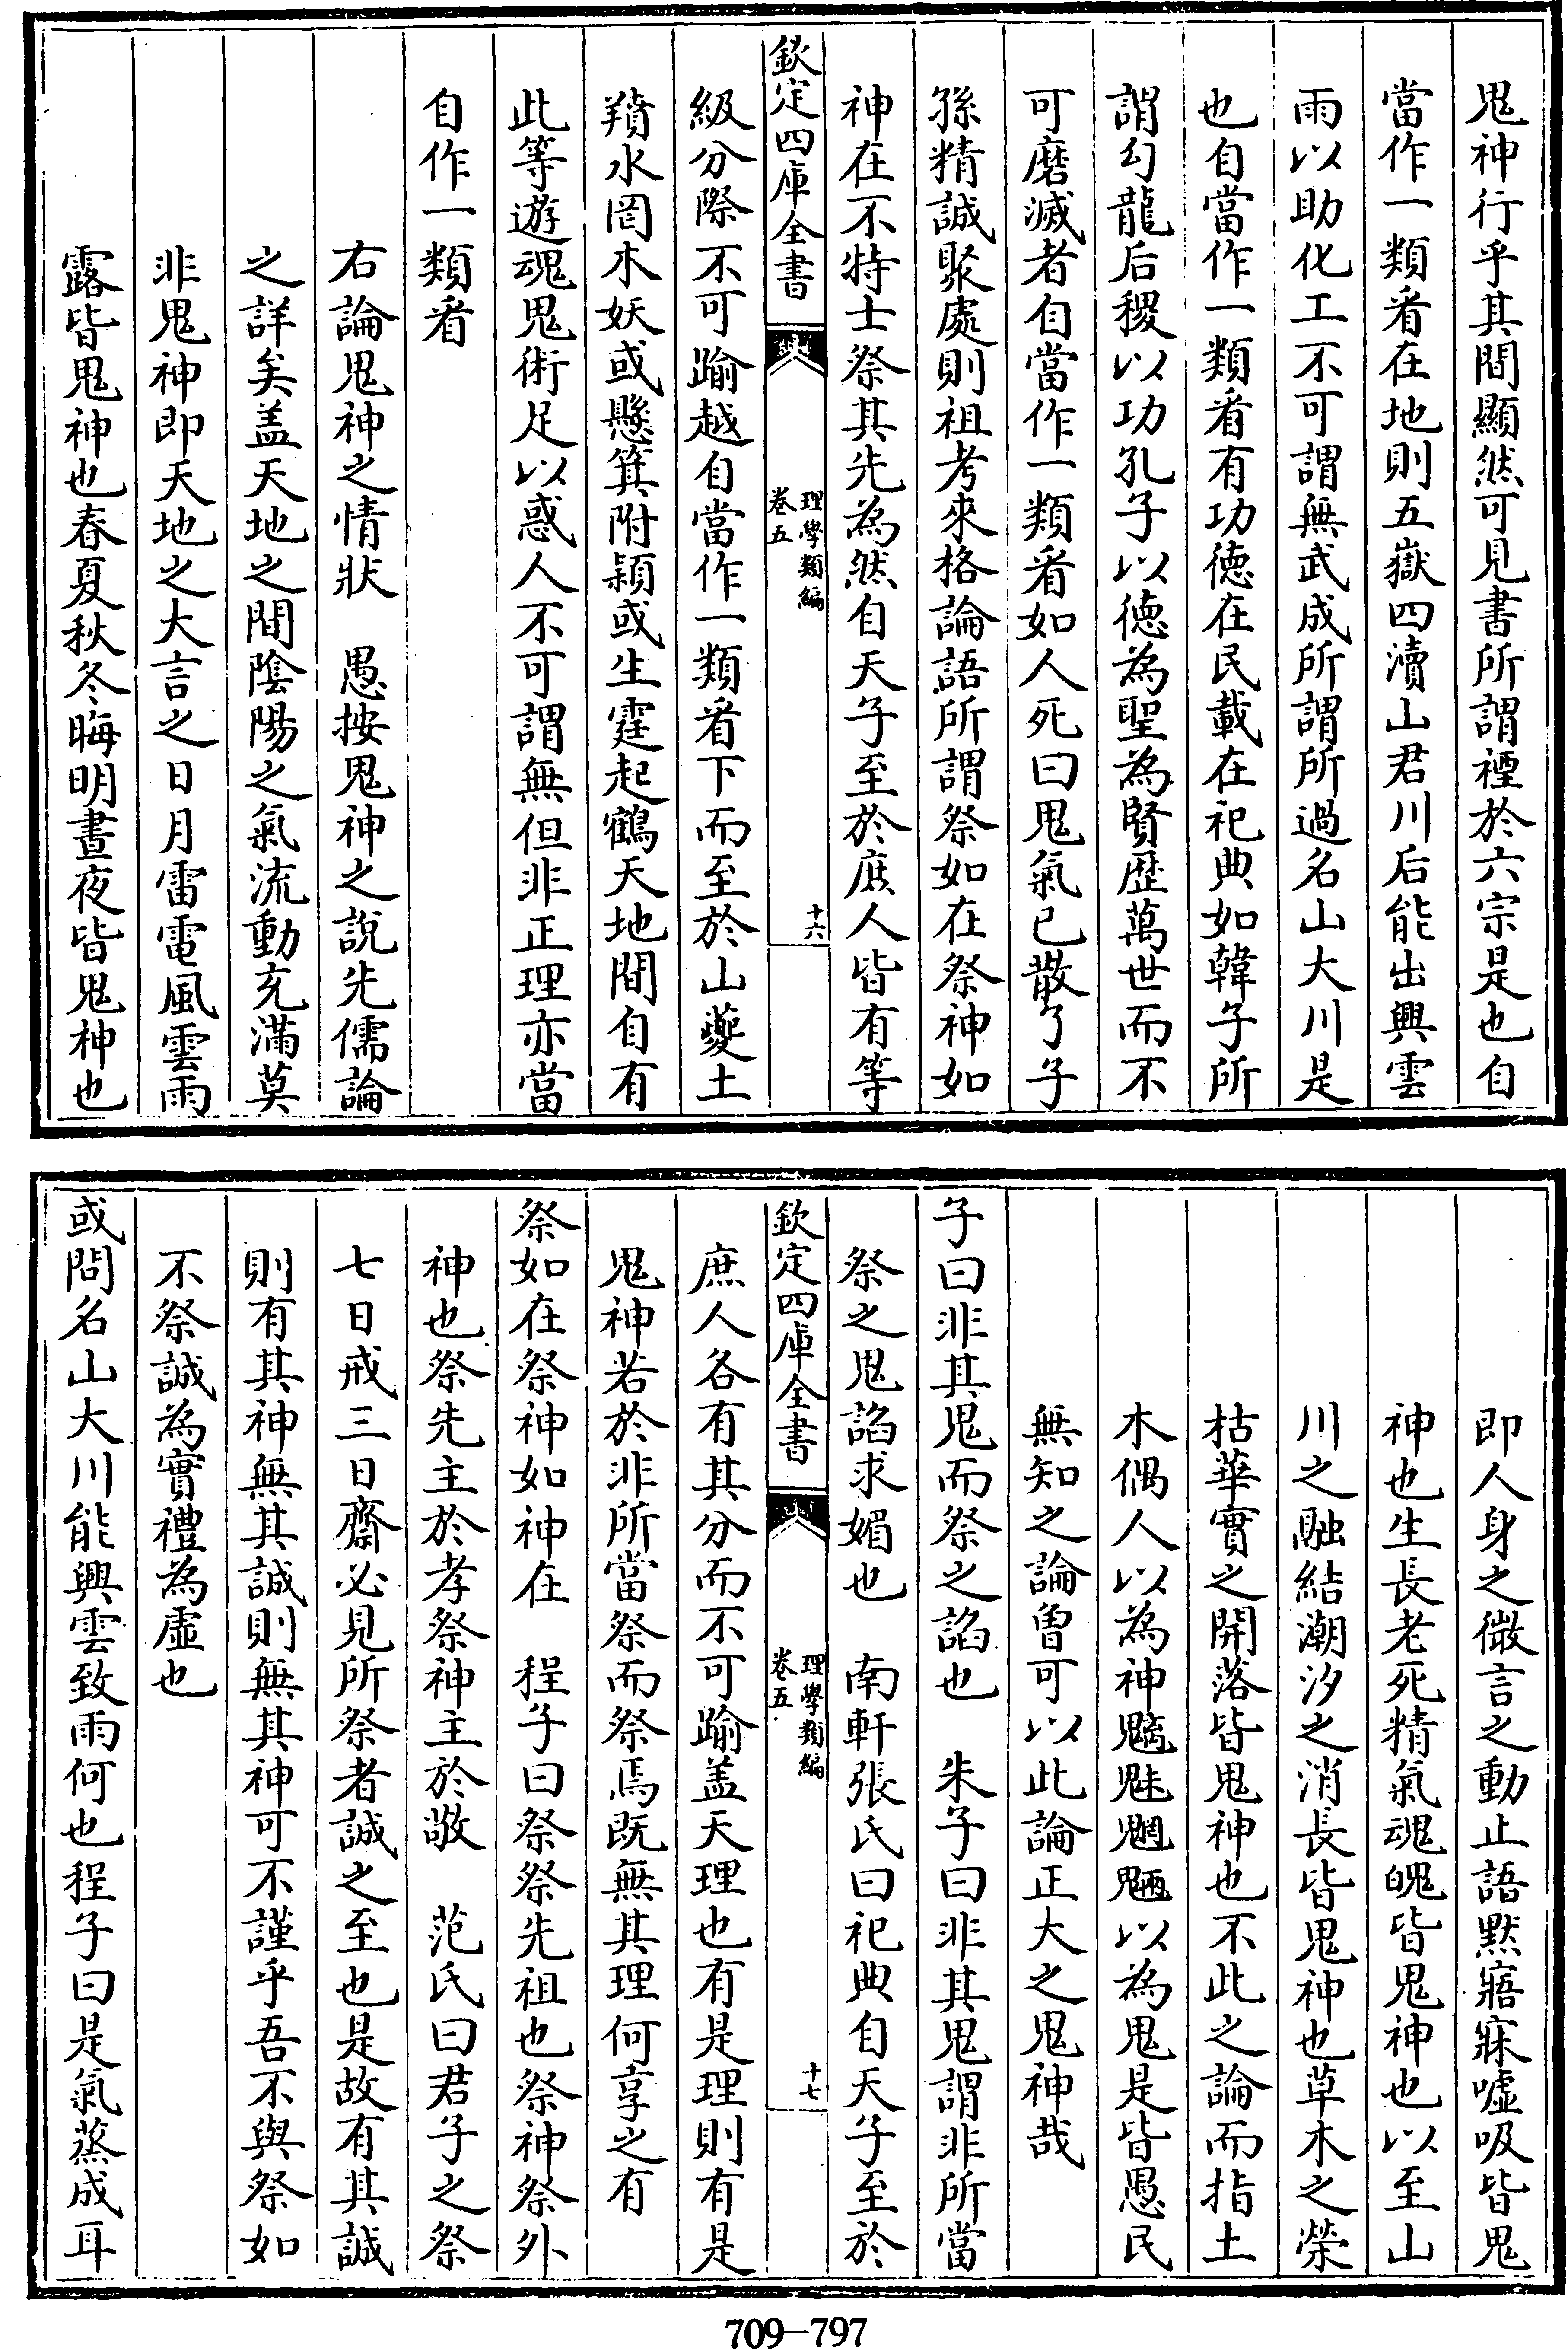 鬼神行乎其間顯然可見書所謂禋於六宗是也自
當作一類看在地則五嶽四瀆山君川后能出興雲
雨以助化工不可謂無武成所謂所過名山大川是
也自當作一類看有功徳在民載在祀典如韓子所
謂勾龍后稷以功孔子以徳為聖為賢歴萬世而不
可磨滅者自當作一類看如人死曰鬼氣已散了子
孫精誠聚處則祖考來格論語所謂祭如在祭神如
神在不特士祭其先為然自天子至於庶人皆有等
欽定四庫全書
理學類編
卷五
十六
級分際不可踰越自當作一類看下而至於山夔土
羵水罔木妖或懸箕附穎或生霆起鶴天地間自有
此等遊魂鬼術足以惑人不可謂無但非正理亦當
自作一類看
右論鬼神之情狀　愚按鬼神之說先儒論
之詳矣盖天地之間陰陽之氣流動充滿莫
非鬼神即天地之大言之日月雷電風雲雨
露皆鬼神也春夏秋冬晦明晝夜皆鬼神也
即人身之微言之動止語黙寤寐嘘吸皆鬼
神也生長老死精氣魂魄皆鬼神也以至山
川之融結潮汐之消長皆鬼神也草木之榮
枯華實之開落皆鬼神也不此之論而指土
木偶人以為神魑魅魍魎以為鬼是皆愚民
無知之論曽可以此論正大之鬼神哉
子曰非其鬼而祭之諂也　朱子曰非其鬼謂非所當
祭之鬼諂求媚也　南軒張氏曰祀典自天子至於
欽定四庫全書
理學類編
卷五
十七
庶人各有其分而不可踰盖天理也有是理則有是
鬼神若於非所當祭而祭焉既無其理何享之有
祭如在祭神如神在　程子曰祭祭先祖也祭神祭外
神也祭先主於孝祭神主於敬　范氏曰君子之祭
七日戒三日齋必見所祭者誠之至也是故有其誠
則有其神無其誠則無其神可不謹乎吾不與祭如
不祭誠為實禮為虛也
或問名山大川能興雲致雨何也程子曰是氣蒸成耳
709—797